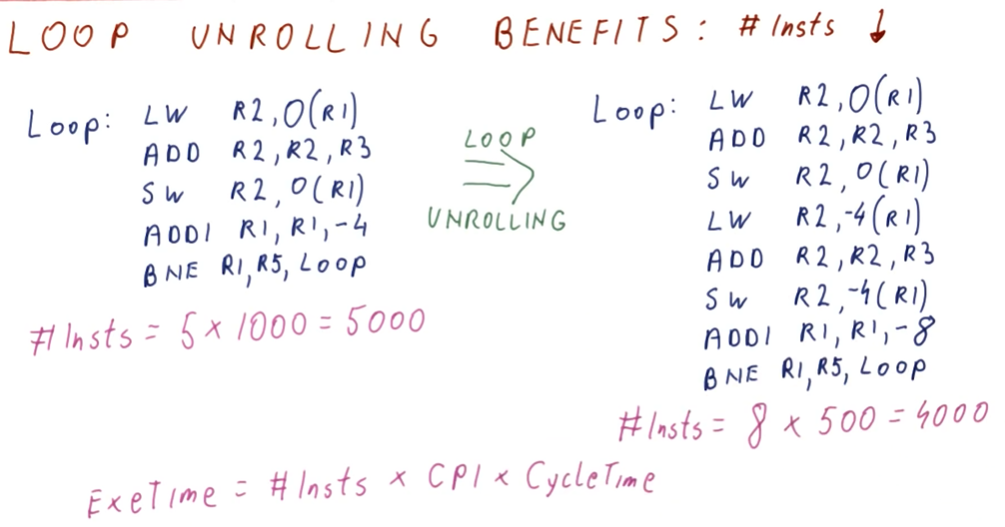 LOOP UNROLLING BENEFITS: # Insts ↓
Loop: LW R2, 0(R1)
ADD R2, R2, R3
SW R2, 0(R1)
ADDI R1, R1, -4
BNE R1, R5, Loop
# Insts = 5 × 1000 = 5000
LOOP
UNROLLING
Loop: LW R2, 0(R1)
ADD R2, R2, R3
SW R2, 0(R1)
LW R2, -4(R1)
ADD R2, R2, R3
SW R2, -4(R1)
ADDI R1, R1, -8
BNE R1, R5, Loop
# Insts = 8 × 500 = 4000
ExeTime = # Insts × CPI × CycleTime